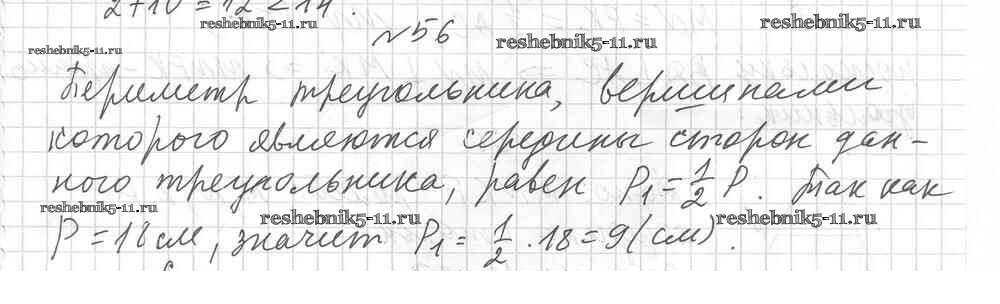 2+10=12<14.
reshebnik5-11.ru
reshebnik5-11.ru
reshebnik5-11.ru
№56
reshebnik5-11.ru
Периметр треугольника, вершинами
которого являются середины сторон дан-
ного треугольника, равен P₁=1/2 P. Так как
reshebnik5-11.ru
reshebnik5-11.ru
reshebnik5-11.ru
P=18см, значит P₁= 1/2 ·18=9(см).